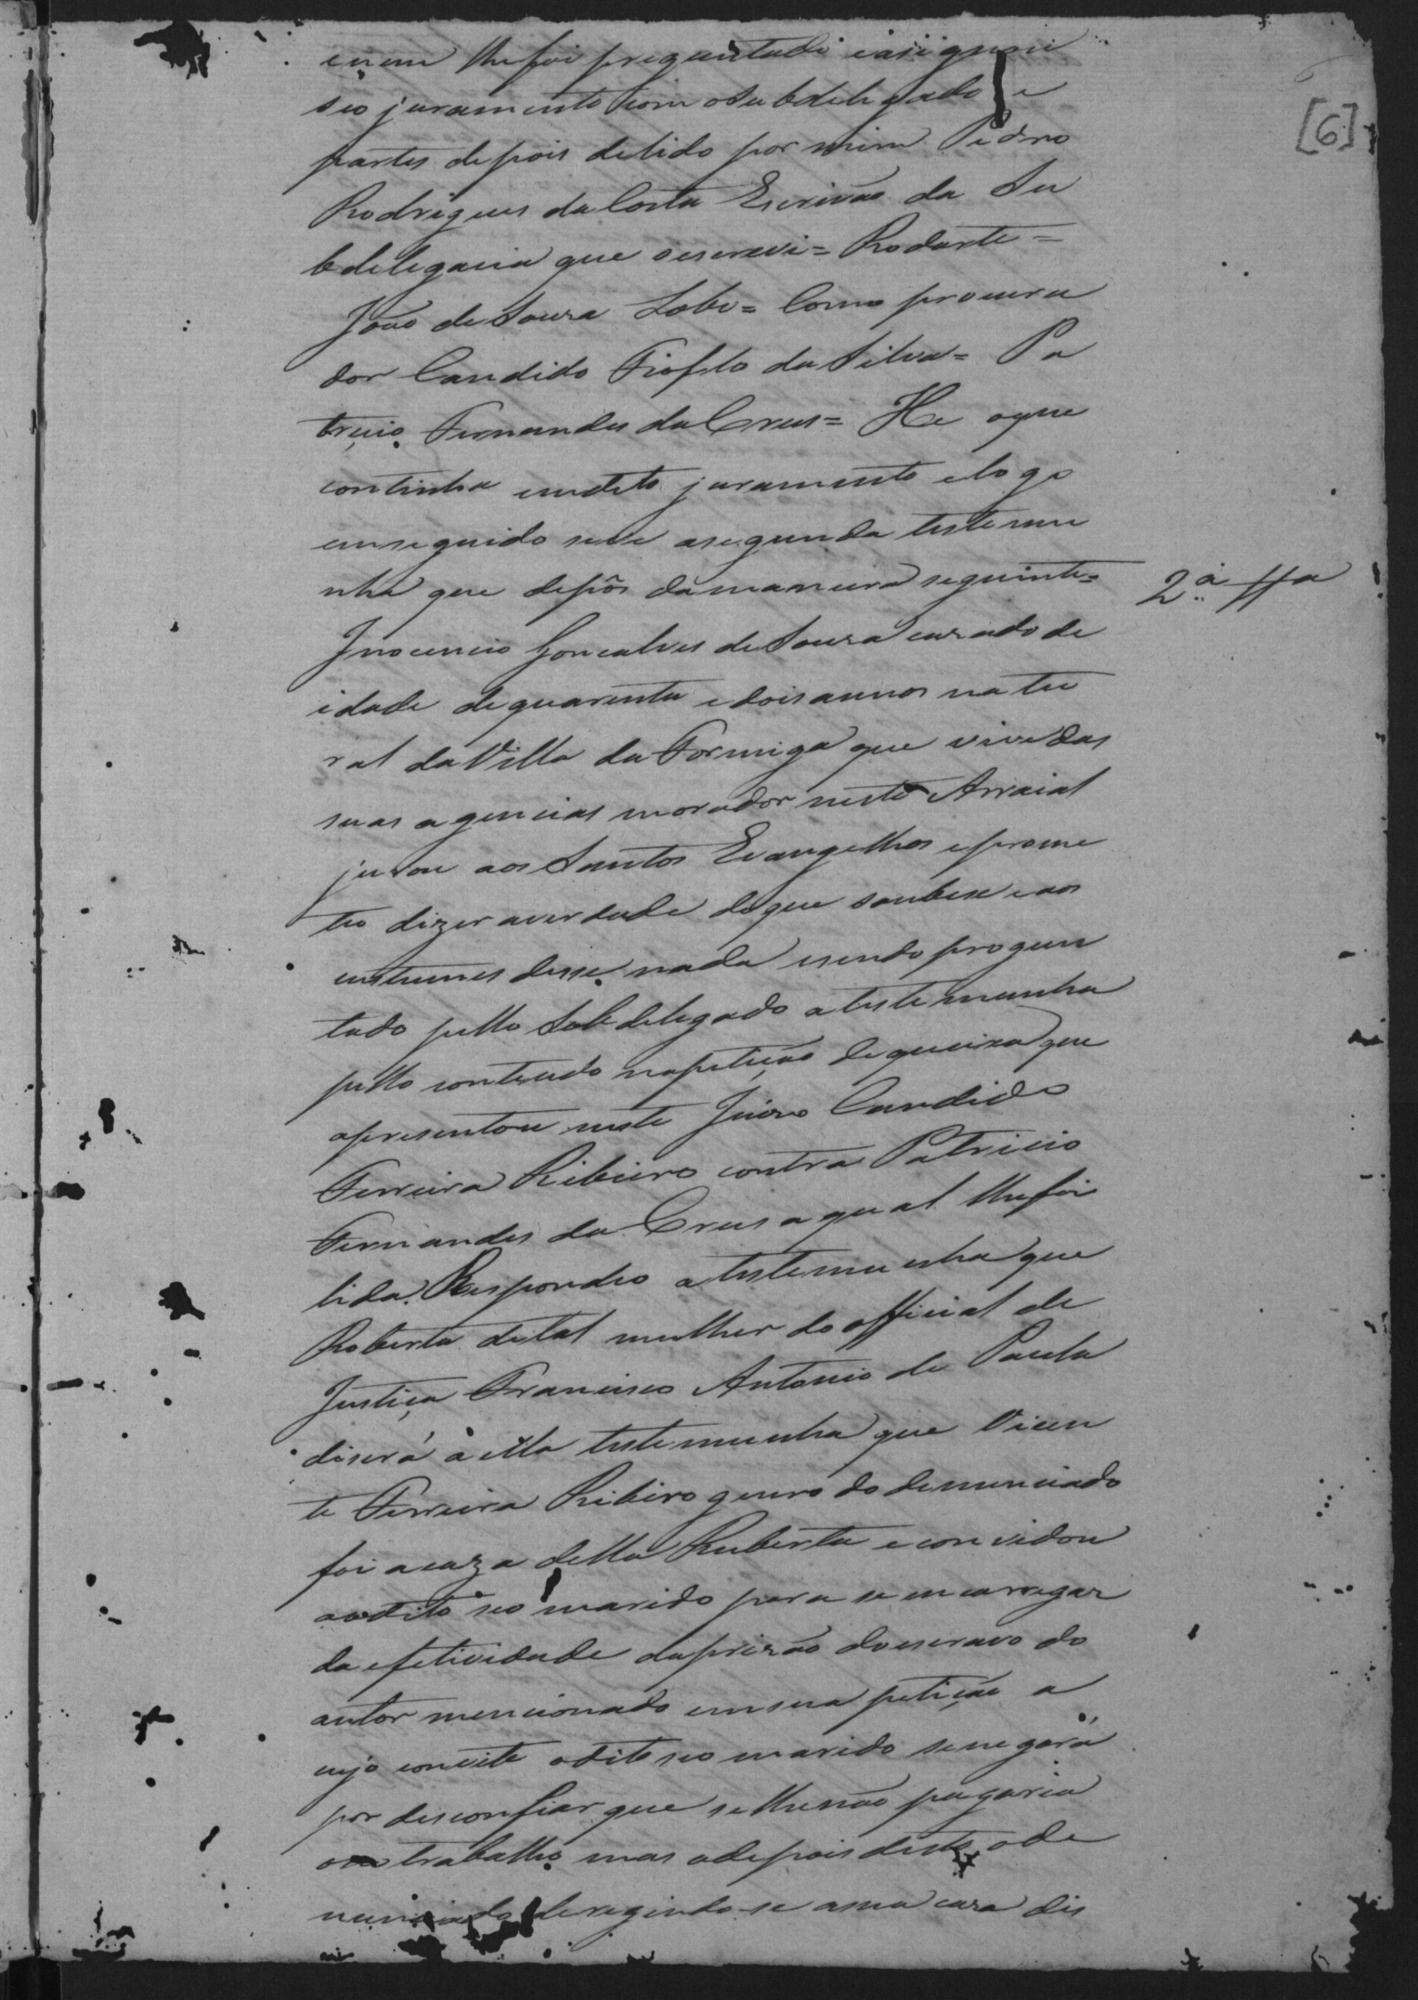 enem lhe foi preguntado e asignou
seo juramento com o Subdelegado e
partes depois de lido por mim Pedro
Rodrigues da Costa Escrivão da Su
bdelegacia que oescrevi = Rodarte =
João de Souza Lobo = Como procura
dor Candido Fiofilo da Silva = Pa
tricio Fernandes da Crus = He oque
continha emdito juramento elogo
emseguido seve asegunda testemu
nha que depôs damaneira seguinte =
2.ª tta
Inocencio Gonçalves de Souza cazado de
idade de quarenta e dois annos natu
ral da Villa da Formiga que vive das
suas agencias morador neste Arraial
jurou aos Santos Evangelhos eprome
teo dizer averdade doque soubese eaos
custumes disse nada esendo pregun
tado pello Sobdelegado atestemunha
pello conteudo napetição de queixa que
apresentou neste Juizo Candido
Ferreira Ribeiro contra Patricio
Fernandes da Crus aqual lhefoi
lida. Respondeo atestemunha que
Roberta detal mulher do official de
Justiça Francisco Antonio de Paula
diserá á ella testemunha que Vicen
te Ferreira Ribeiro genro do denunciado
foi acaza della Ruberta e convidou
aodito seo marido para se encarregar
da efetividade daprizão doescravo do
autor mencionado emsua petição a
cujo convite odito seo marido senegará
por desconfiar que selhenão pagaria
o trabalho mas adepois deste ode
nunciado deregindo-se asua caza dis
[6]